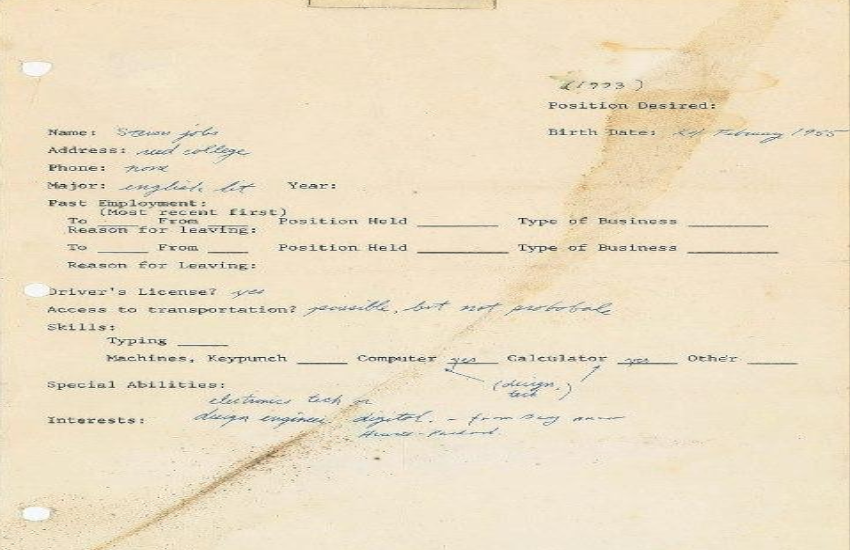 (1973)
Position Desired:
Name: Steven jobs Birth Date: 24 February 1955
Address: reed college
Phone: none
Major: english lit Year:
Past Employment:
(Most recent first)
To _____ From _____ Position Held _____ Type of Business _____
Reason for leaving:
To _____ From _____ Position Held _____ Type of Business _____
Reason for Leaving:
Driver's License? yes
Access to transportation? possible, but not probable
Skills:
Typing _____
Machines, Keypunch _____ Computer yes Calculator yes Other _____
(design, tech)
Special Abilities:
electronics tech or
Interests: design engineer. digital. - from Bay near
Hewitt-Packard